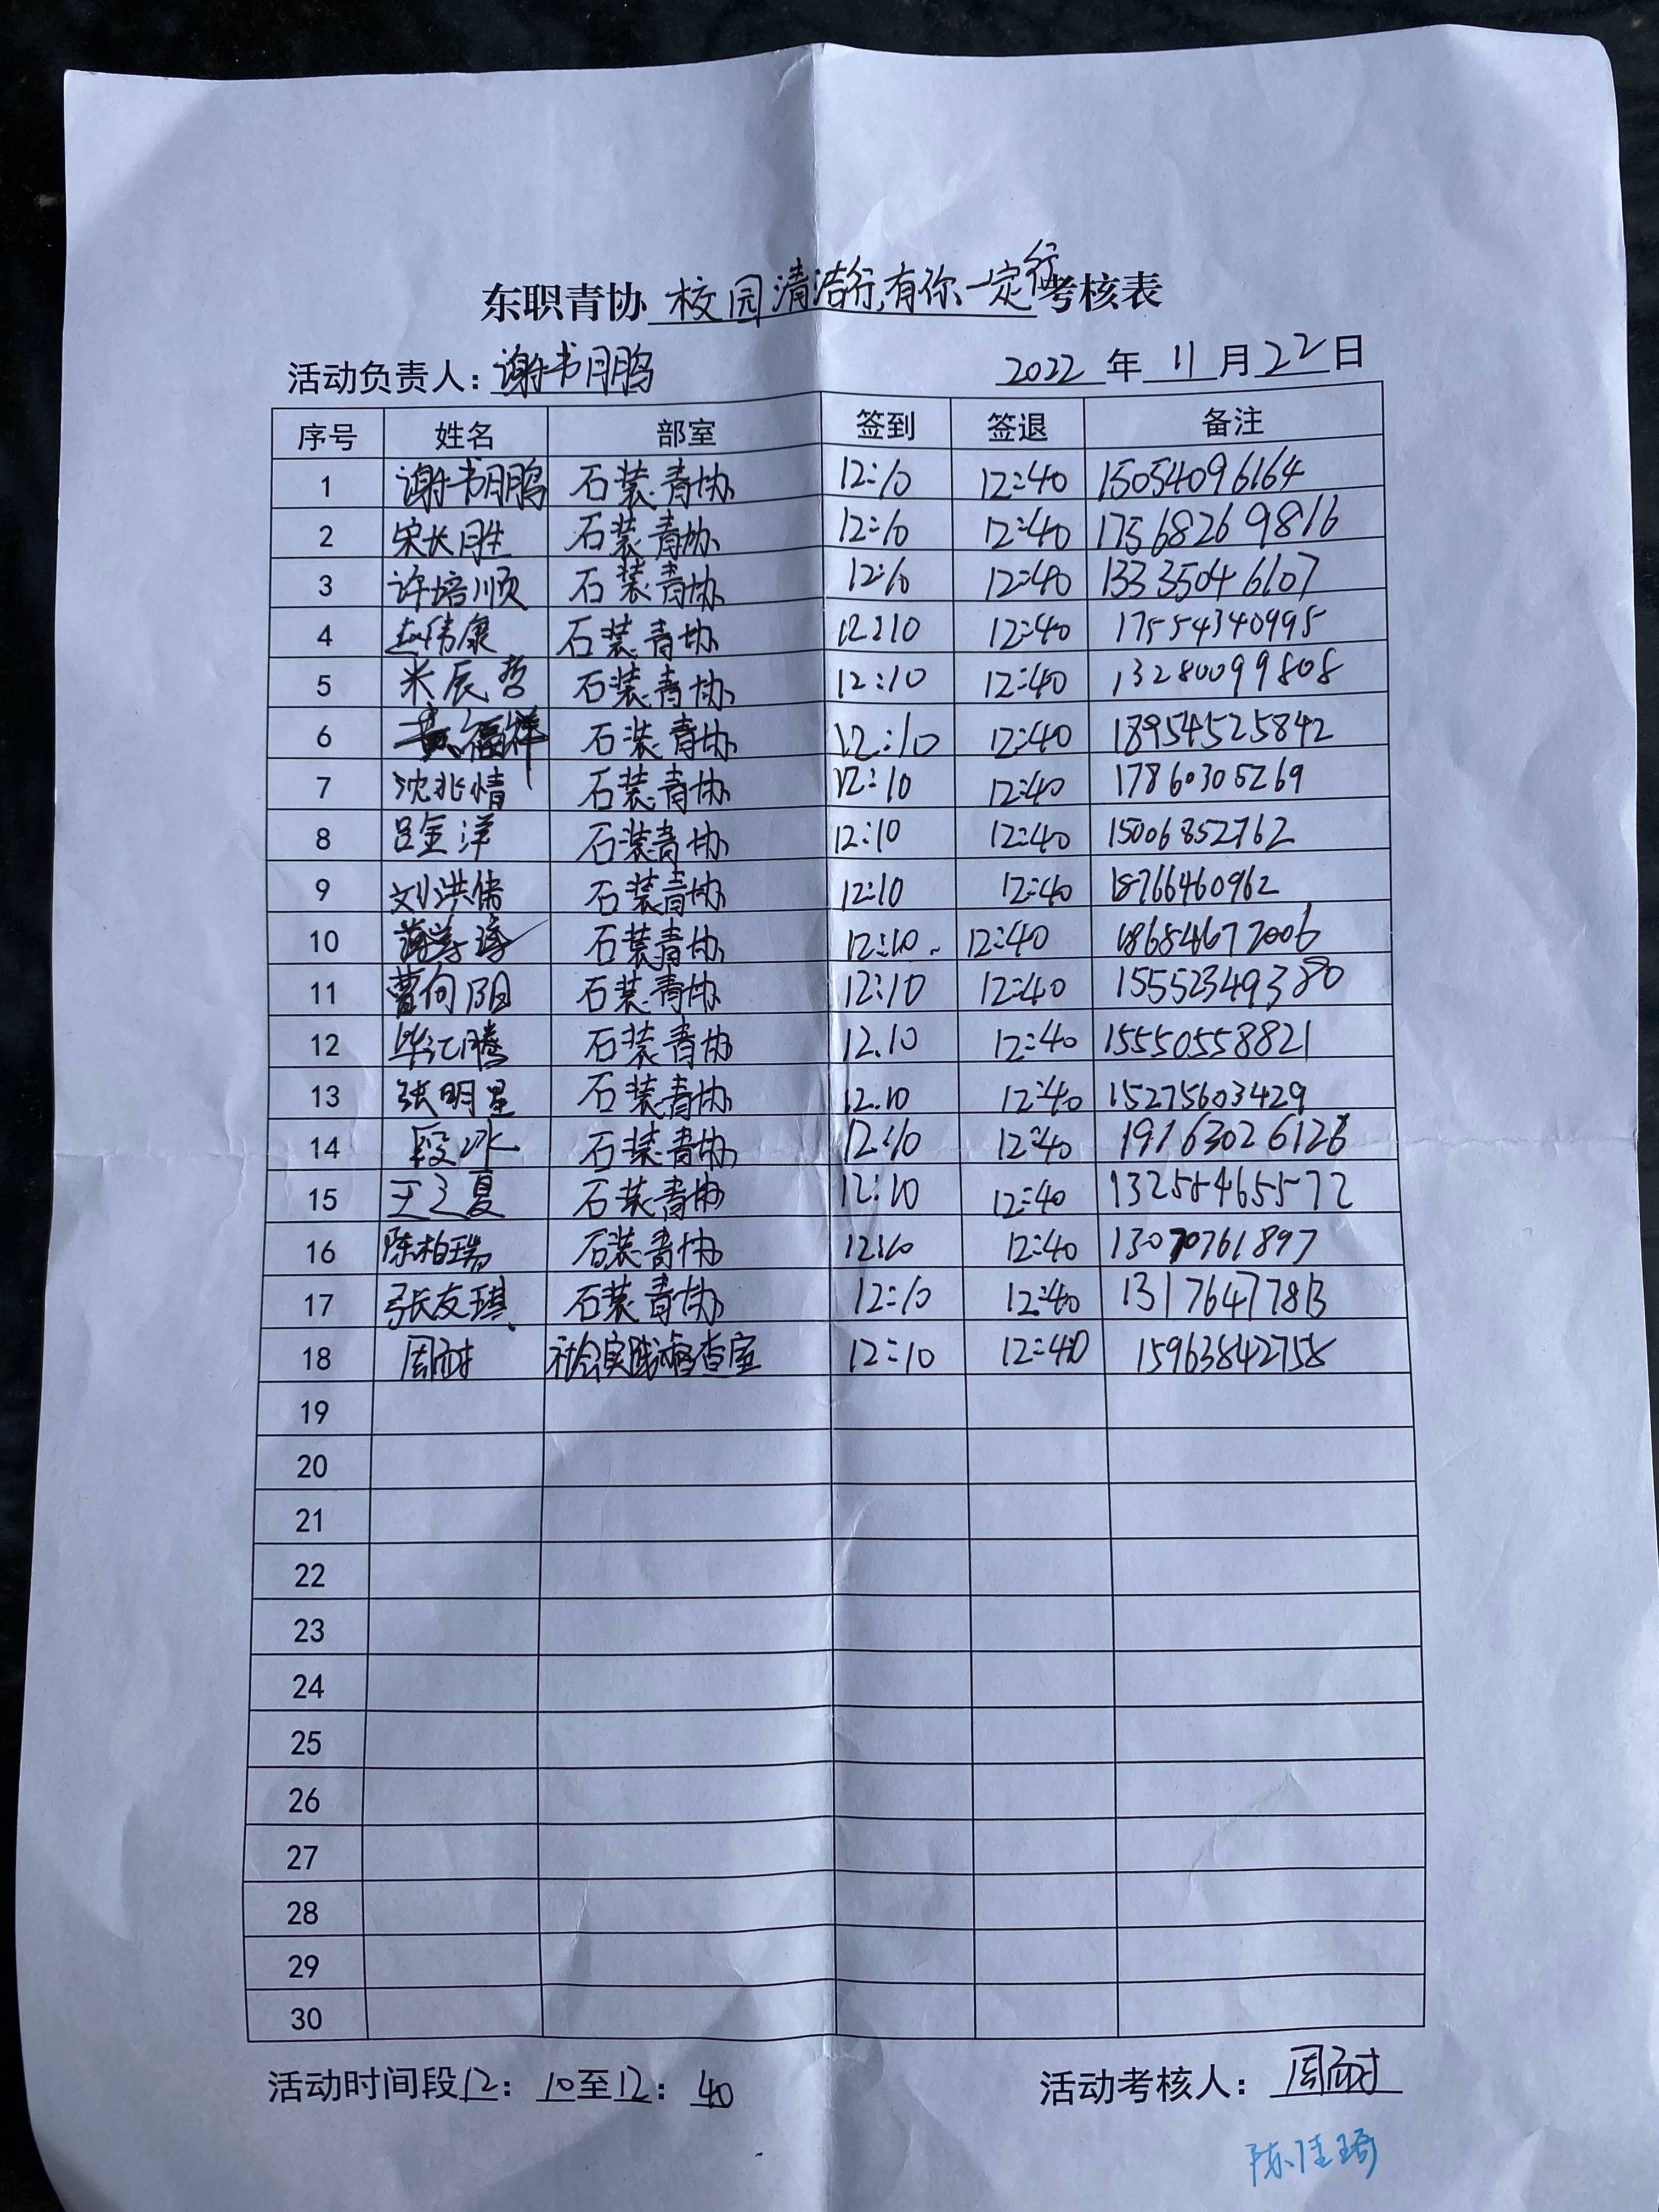 东职青协 校园清洁行,有你一定行 考核表
活动负责人：谢书鹏 2022 年 11 月 22 日
序号 姓名 部室 签到 签退 备注
1 谢书鹏 石装青协 12:10 12:40 15054096164
2 宋长胜 石装青协 12:10 12:40 17568269816
3 许培顺 石装青协 12:10 12:40 13335046107
4 赵伟康 石装青协 12:10 12:40 17554340995
5 米辰哲 石装青协 12:10 12:40 13280099808
6 黄福祥 石装青协 12:10 12:40 18954525842
7 沈兆情 石装青协 12:10 12:40 17860305269
8 吕金洋 石装青协 12:10 12:40 15006852762
9 刘洪伟 石装青协 12:10 12:40 18766460962
10 石装青协 12:10 12:40 186854672006
11 曹向阳 石装青协 12:10 12:40 15552349380
12 毕汇腾 石装青协 12.10 12:40 15550558821
13 张明星 石装青协 12.10 12:40 15275603429
14 段冰 石装青协 12:10 12:40 19163026126
15 王之夏 石装青协 12:10 12:40 13258465572
16 陈柏瑞 石装青协 12:10 12:40 13070761897
17 张友琪 石装青协 12:10 12:40 13176477813
18 周耐 社会实践督查室 12:10 12:40 15963842758
19
20
21
22
23
24
25
26
27
28
29
30
活动时间段12：10至12：40 活动考核人：周耐
陈佳琦